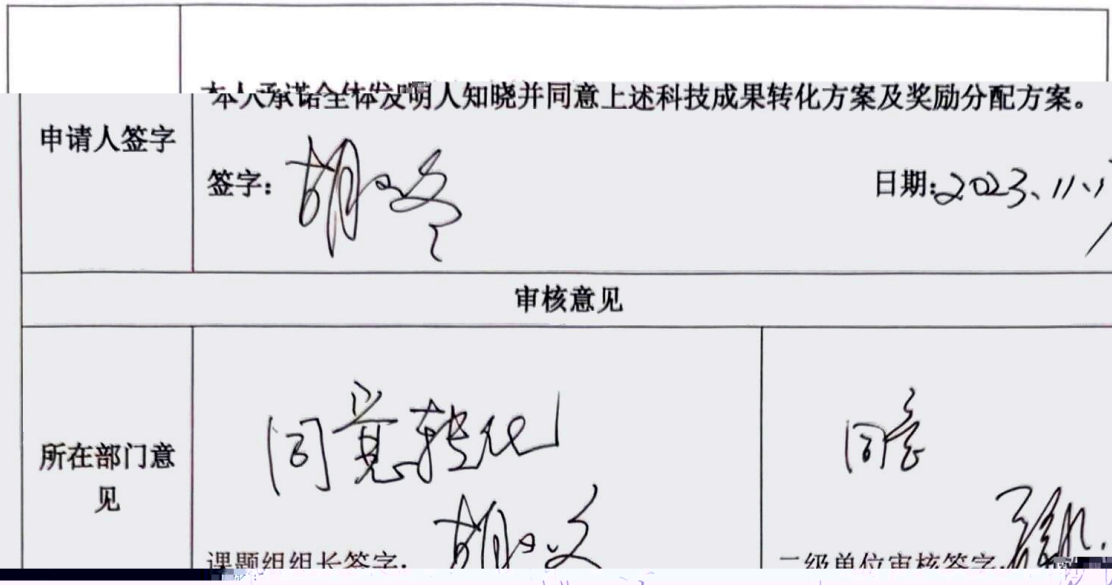 本人承诺全体发明人知晓并同意上述科技成果转化方案及奖励分配方案。
申请人签字
签字： 日期：2023.11.
审核意见
所在部门意见
同意转化
同意
课题组组长签字：
二级单位审核签字